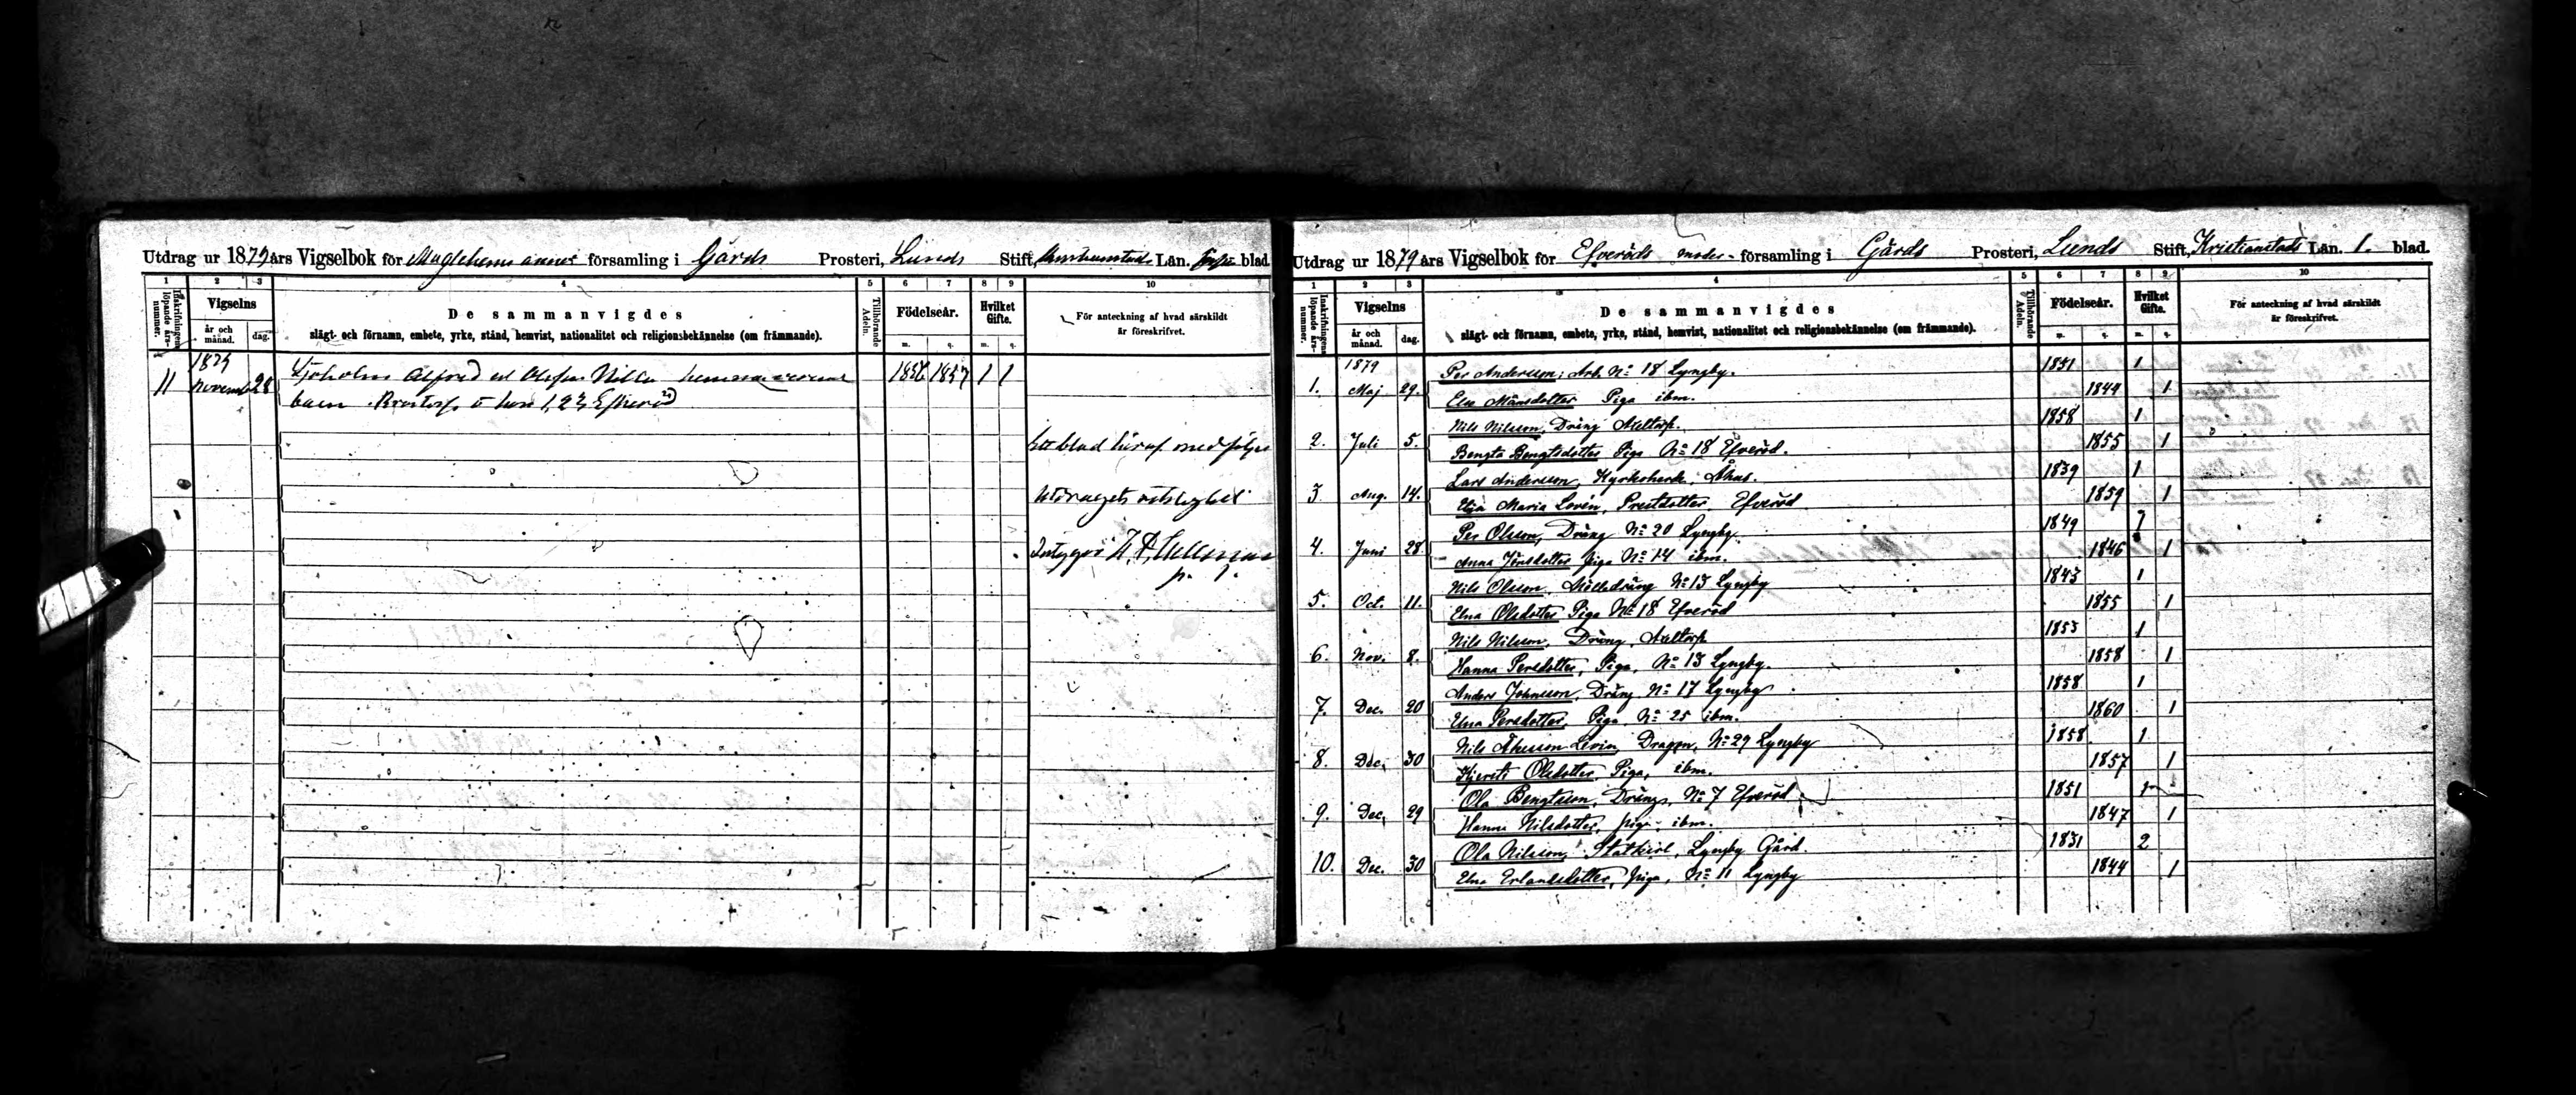 Utdrag ur 1879 års Vigselbok för Maglehems annex församling i Gärds Prosteri, Lunds Stift, Län. blad
1 2 3 4 5 6 7 8 9 10
Inskrifningens löpande års-nummer.
Vigselns
år och månad.
dag.
De sammanvigdes
slägt- och förnamn, embete, yrke, stånd, hemvist, nationalitet och religionsbekännelse (om främmande).
Tillhörande Adeln.
Födelseår.
m. q.
Hvilket Gifte.
m. q.
För anteckning af hvad särskildt är föreskrifvet.
1879
11 November 28 Sjöholm Alfred Nilla 1856 1857 1 1
barn
Ett blad häraf medföljer
Utdragets riktighet
Intygar
p. l.
Utdrag ur 1879 års Vigselbok för Efveröds moder- församling i Gärds Prosteri, Lunds Stift, Kristianstads Län. 1. blad.
1 2 3 4 5 6 7 8 9 10
Inskrifningens löpande års-nummer.
Vigselns
år och månad.
dag.
De sammanvigdes
slägt- och förnamn, embete, yrke, stånd, hemvist, nationalitet och religionsbekännelse (om främmande).
Tillhörande Adeln.
Födelseår.
m. q.
Hvilket Gifte.
m. q.
För anteckning af hvad särskildt är föreskrifvet.
1879
Per Andersson, Arb. No 18 Lyngby. 1851 1
1. Maj 29. Elna Månsdotter Piga ibm. 1849 1
Nils Nilsson, Dräng Axeltorp. 1858 1
2. Juli 5. Bengta Bengtsdotter Piga No 18 Efveröd. 1855 1
Lars Andersson, Kyrkoherde, Åhus. 1839 1
3 Aug. 14. Maria Lovén, Prestdotter, Efveröd 1859 1
Per Olsson, Dräng No 20 Lyngby. 1849 1
4. Juni 28. Anna Jönsdotter Piga No 14 ibm. 1846 1
Nils Olsson, Mölledräng No 13 Lyngby 1843 1
5. Oct. 11. Elna Olsdotter Piga No 18 Efveröd 1855 1
Nils Nilsson, Dräng, Axeltorp 1853 1
6. Nov. 8. Hanna Persdotter, Piga, No 13 Lyngby. 1858 1
Anders Johnsson, Dräng No 17 Lyngby 1858 1
7. Dec. 20 Elna Persdotter, Piga No 25 ibm. 1860 1
Nils Åkesson Levin, Dragon, No 29 Lyngby 1858 1
8. Dec. 30 Kjersti Olsdotter, Piga, ibm. 1857 1
Ola Bengtsson, Dräng, No 7 Efveröd 1851 1
9. Dec. 29 Hanna Nilsdotter, Piga, ibm. 1847 1
Ola Nilsson, Statkarl, Lyngby Gård. 1831 2
10. Dec. 30 Elna Erlandsdotter, Piga, No 11 Lyngby 1844 1